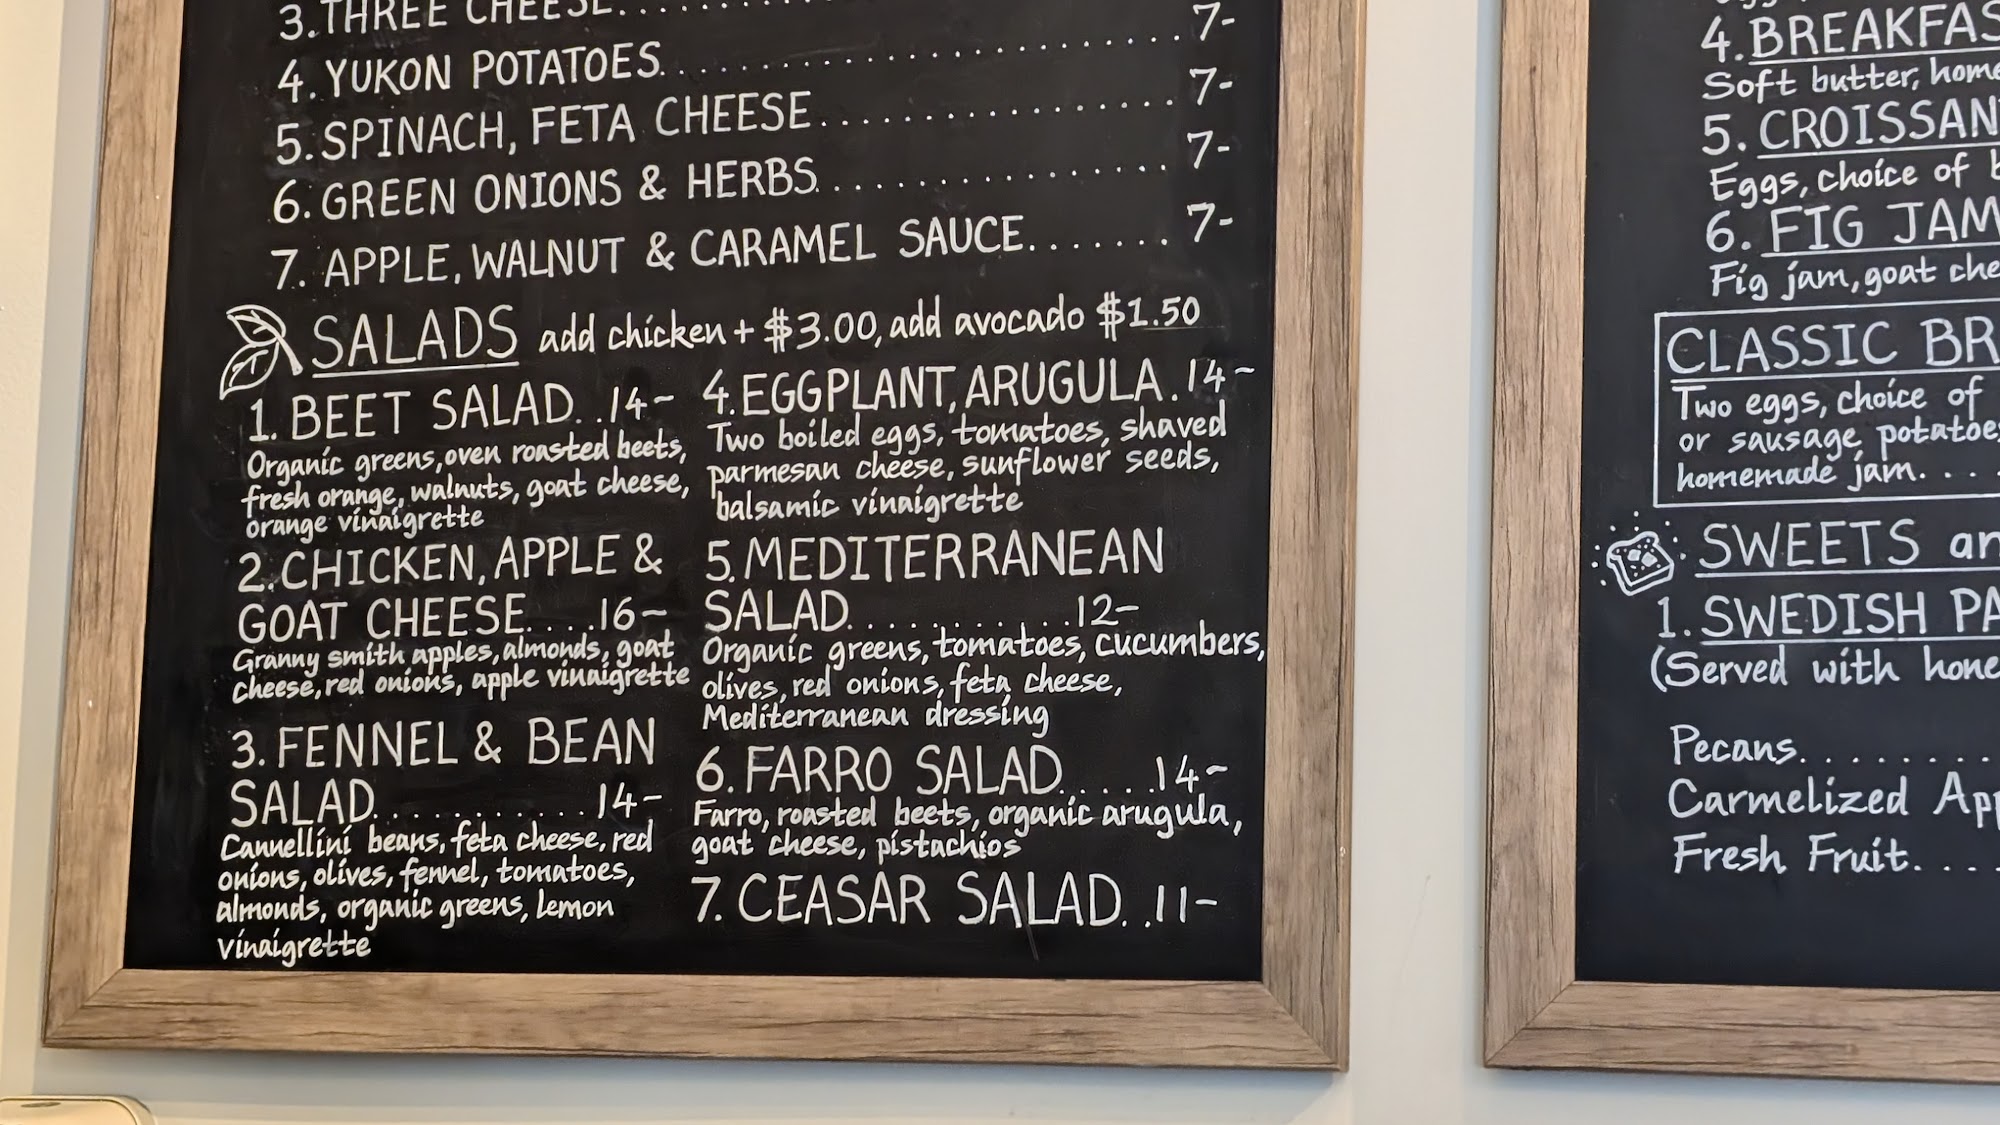 3. THREE CHEESE..........
4. YUKON POTATOES..........7-
5. SPINACH, FETA CHEESE..........7-
6. GREEN ONIONS & HERBS..........7-
7. APPLE, WALNUT & CARAMEL SAUCE.......7-
SALADS add chicken + $3.00, add avocado $1.50
1. BEET SALAD...14-
Organic greens, oven roasted beets,
fresh orange, walnuts, goat cheese,
orange vinaigrette
2. CHICKEN, APPLE &
GOAT CHEESE....16-
Granny smith apples, almonds, goat
cheese, red onions, apple vinaigrette
3. FENNEL & BEAN
SALAD...........14-
Cannellini beans, feta cheese, red
onions, olives, fennel, tomatoes,
almonds, organic greens, lemon
vinaigrette
4. EGGPLANT, ARUGULA.14-
Two boiled eggs, tomatoes, shaved
parmesan cheese, sunflower seeds,
balsamic vinaigrette
5. MEDITERRANEAN
SALAD...........12-
Organic greens, tomatoes, cucumbers,
olives, red onions, feta cheese,
Mediterranean dressing
6. FARRO SALAD.....14-
Farro, roasted beets, organic arugula,
goat cheese, pistachios
7. CEASAR SALAD..11-
4. BREAKFAS
Soft butter, home
5. CROISSAN
Eggs, choice of b
6. FIG JAM
Fig jam, goat che
CLASSIC BR
Two eggs, choice of
or sausage, potatoes
homemade jam....
SWEETS an
1. SWEDISH PA
(Served with hone
Pecans..........
Carmelized App
Fresh Fruit....